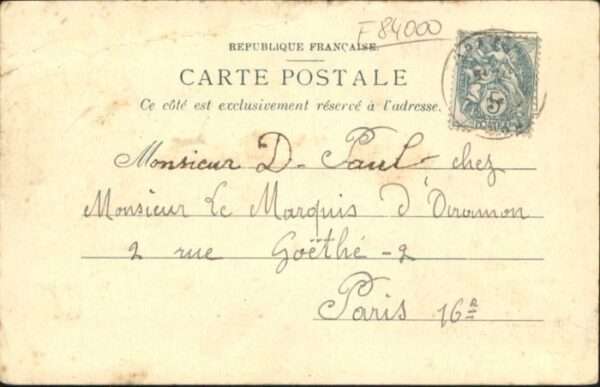 F 84000
REPUBLIQUE FRANÇAISE.
CARTE POSTALE
Ce côté est exclusivement réservé à l'adresse.
5
Monsieur D. Paul chez
Monsieur Le Marquis d'Oramon
2 rue Goëthé - 2
Paris 16e